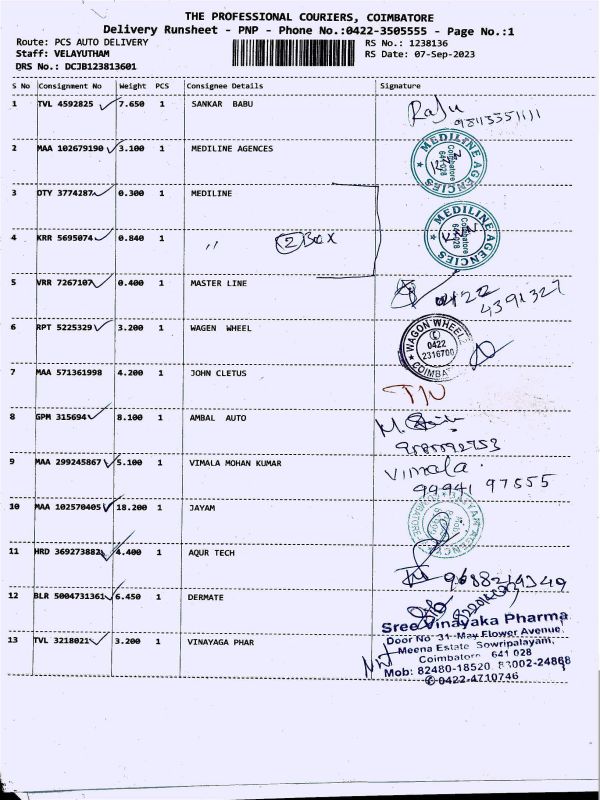 THE PROFESSIONAL COURIERS, COIMBATORE
Delivery Runsheet - PNP - Phone No.:0422-3505555 - Page No.:1
Route: PCS AUTO DELIVERY RS No.: 1238136
Staff: VELAYUTHAM RS Date: 07-Sep-2023
DRS No.: DCJB123813601
S No Consignment No Weight PCS Consignee Details Signature
1 TVL 4592825 7.650 1 SANKAR BABU Raju
2 MAA 102679190 3.100 1 MEDILINE AGENCIES MEDILINE AGENCIES Coimbatore
3 DTY 3774287 0.300 1 MEDILINE
4 KRR 5695074 0.840 1 〃 2 Box MEDILINE AGENCIES Coimbatore
5 VRR 7267107 0.400 1 MASTER LINE 0422
4391327
6 RPT 5225329 3.200 1 WAGEN WHEEL WAGON WHEELZ 0422 2316700 COIMBA
7 MAA 571361998 4.200 1 JOHN CLETUS
8 GPM 315694 8.100 1 AMBAL AUTO
9 MAA 299245867 5.100 1 VIMALA MOHAN KUMAR Vimala.
99941 97555
10 MAA 102570405 18.200 1 JAYAM
11 HRD 369273882 4.400 1 AQUR TECH
12 BLR 5004731361 6.450 1 DERMATE
13 TVL 3218021 3.200 1 VINAYAGA PHAR
Sree Vinayaka Pharma
Door No 31 May Flower Avenue,
Meena Estate Sowripalayam,
Coimbatore 641 028
Mob: 82480-18520, 83002-24868
✆0422-4710746